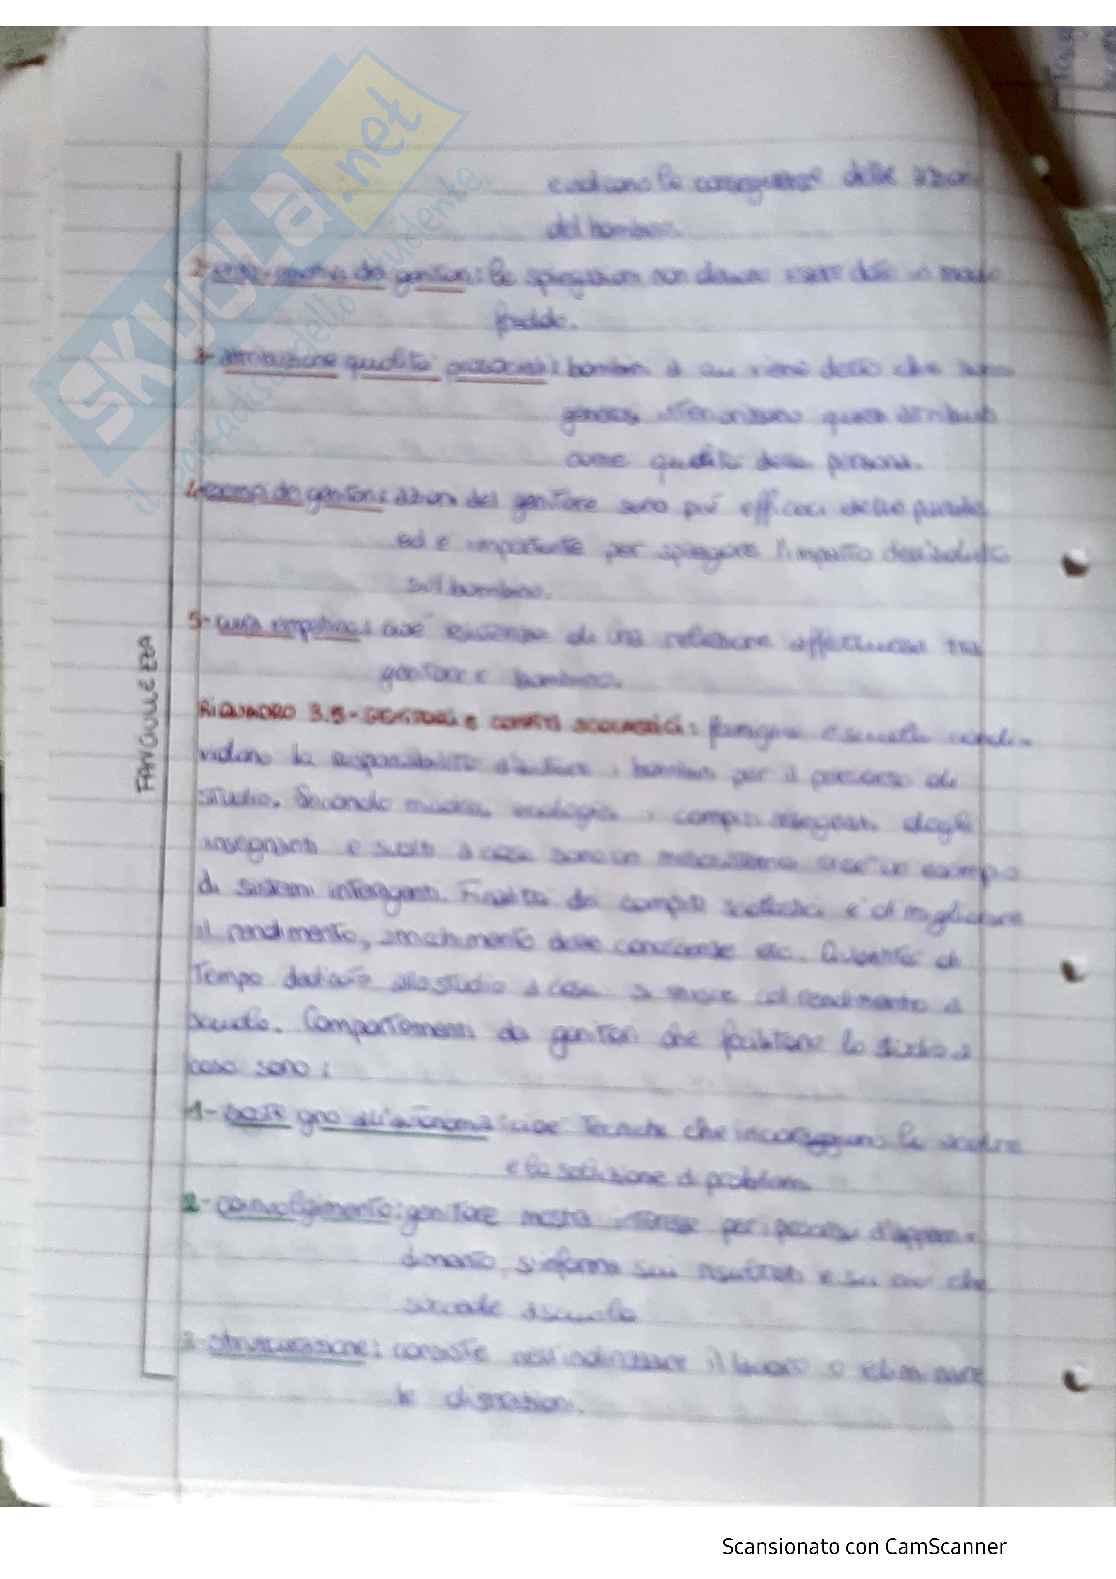 SKUOLA.net
il paradiso dello studente
evidziano le conseguenze delle azioni
del bambino.
dei genitori: le spiegazioni non devono essere date in modo
freddo.
3- attribuzione qualità prosociali: bambini a cui viene detto che sono
generosi interiorizzano questi attributi
come qualità della persona.
4- esempi dei genitori: azioni del genitore sono più efficaci delle parole
ed è importante per spiegare l'impatto
sul bambino.
5- cura empatica: cioè esistenza di una relazione affettuosa tra
genitore e bambino.
RIQUADRO 3.5- GENITORI e COMPITI SCOLASTICI: famiglia e scuola condi-
vidono la responsabilità i bambini per il percorso di
studio. Secondo i compiti assegnati dagli
insegnanti e svolti a casa sono un mesosistema cioè un esempio
di sistemi interagenti. Finalità dei compiti scolastici è di migliorare
il rendimento, arricchimento delle conoscenze etc. Quantità di
Tempo dedicato allo studio a casa col rendimento a
scuola. Comportamenti dei genitori che facilitano lo studio a
casa sono:
1- sostegno all'autonomia: cioè Tecniche che incoraggiano
e la soluzione di problemi.
2- coinvolgimento: genitore mostra interesse per i processi d'appren-
dimento, s'informa sui risultati e su ciò che
succede a scuola
3- strutturazione: consiste nell'indirizzare il lavoro o eliminare
le distrazioni.
FANCIULLEZZA
Scansionato con CamScanner